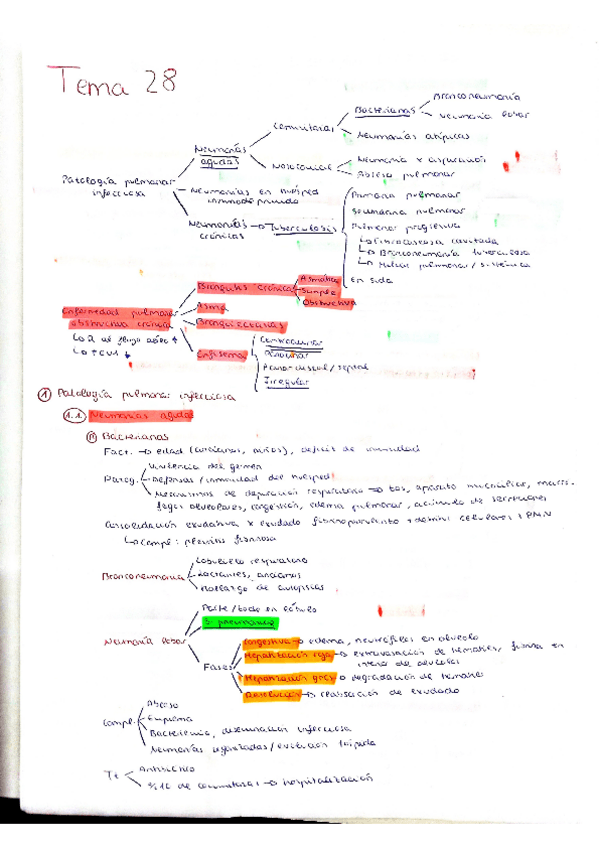 Tema 28
Patología pulmonar infecciosa
Neumonías agudas
Comunitarias
Bacterianas
Bronconeumonía
Neumonía lobar
Neumonías atípicas
Nosocomial
Neumonía x aspiración
Absceso pulmonar
Neumonías en huésped inmunodeprimido
Neumonías crónicas → Tuberculosis
Primaria pulmonar
Secundaria pulmonar
Pulmonar progresiva
↳ Fibrocaseosa cavitada
↳ Bronconeumonía tuberculosa
↳ Miliar pulmonar / sistémica
En sida
Enfermedad pulmonar obstructiva crónica
↳ al flujo aéreo ↑
↓
Bronquitis crónica
Asmática
Simple
Obstructiva
Asma
Bronquiectasias
Enfisema
Centroacinar
Panacinar
Paraacinar / septal
Irregular
① Patología pulmonar infecciosa
1.1. Neumonías agudas
Bacterianas
Fact. → edad (ancianos, niños), déficit de inmunidad
Patog.
Virulencia del germen
Defensas / inmunidad del huésped
Mecanismos de depuración respiratorio → tos, aparato mucociliar, macró-
fagos alveolares, congestión, edema pulmonar, acúmulo de secreciones
Consolidación exudativa x exudado fibrinopurulento + celulares + PMN
↳ Compl: pleuritis fibrinosa
Bronconeumonía
Lobulillo respiratorio
Lactantes, ancianos
Hallazgo de autopsias
Neumonía lobar
Parte / todo en lóbulo
S. pneumoniae
Fases
Congestiva → edema, neutrófilos en alveolo
Hepatización roja → extravasación de hematíes, fibrina en
interior de alveolos
Hepatización gris → degradación de hematíes
Resolución → de exudado
Compl.
Absceso
Empiema
Bacteriemia, diseminación infecciosa
Neumonías organizadas / evolución tórpida
Tt
Antibiótico
de comunitarias → hospitalización